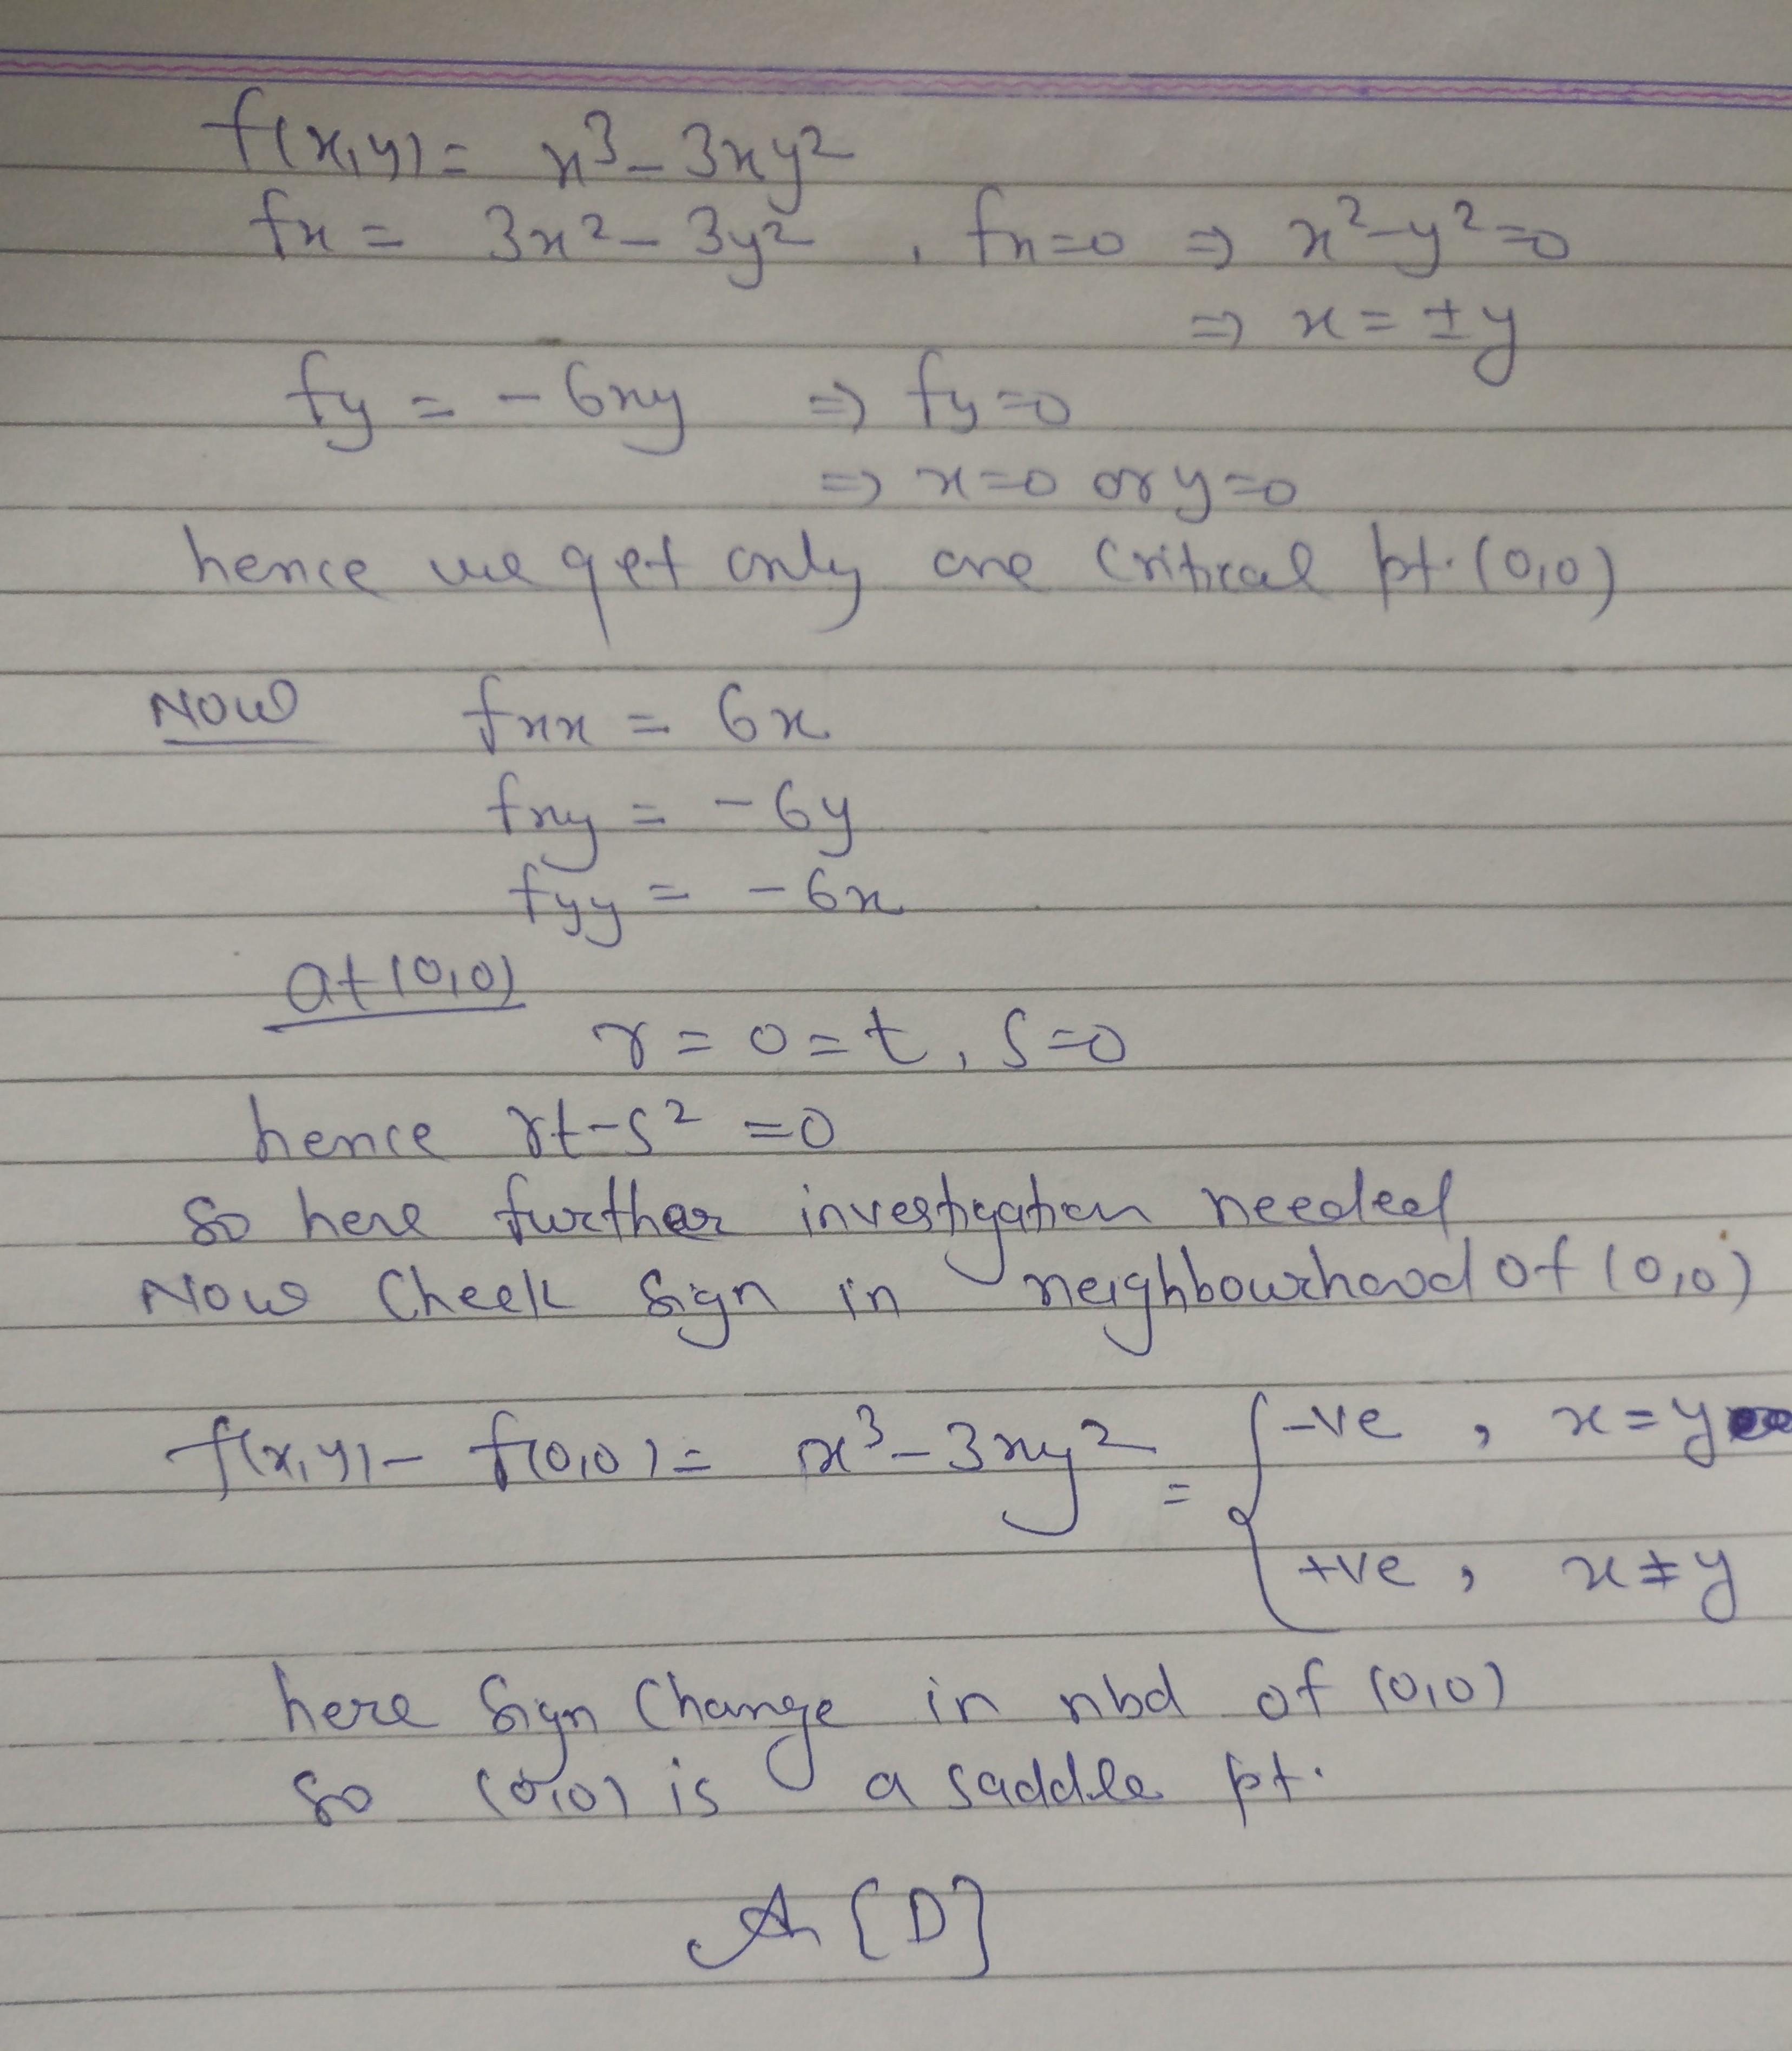 f(x,y) = x³ - 3xy²
fx = 3x² - 3y² , fx=0 ⇒ x²-y²=0
⇒ x = ±y
fy = -6xy ⇒ fy=0
⇒ x=0 or y=0
hence we get only one critical pt. (0,0)
Now fxx = 6x
fxy = -6y
fyy = -6x
at (0,0)
r = 0 = t, s=0
hence rt-s² =0
so here further investigation needed
Now Check sign in neighbourhood of (0,0)
f(x,y) - f(0,0) = x³ - 3xy² = { -ve , x=y
+ve , x≠y
here sign Change in nbd of (0,0)
so (0,0) is a saddle pt.
A [D]